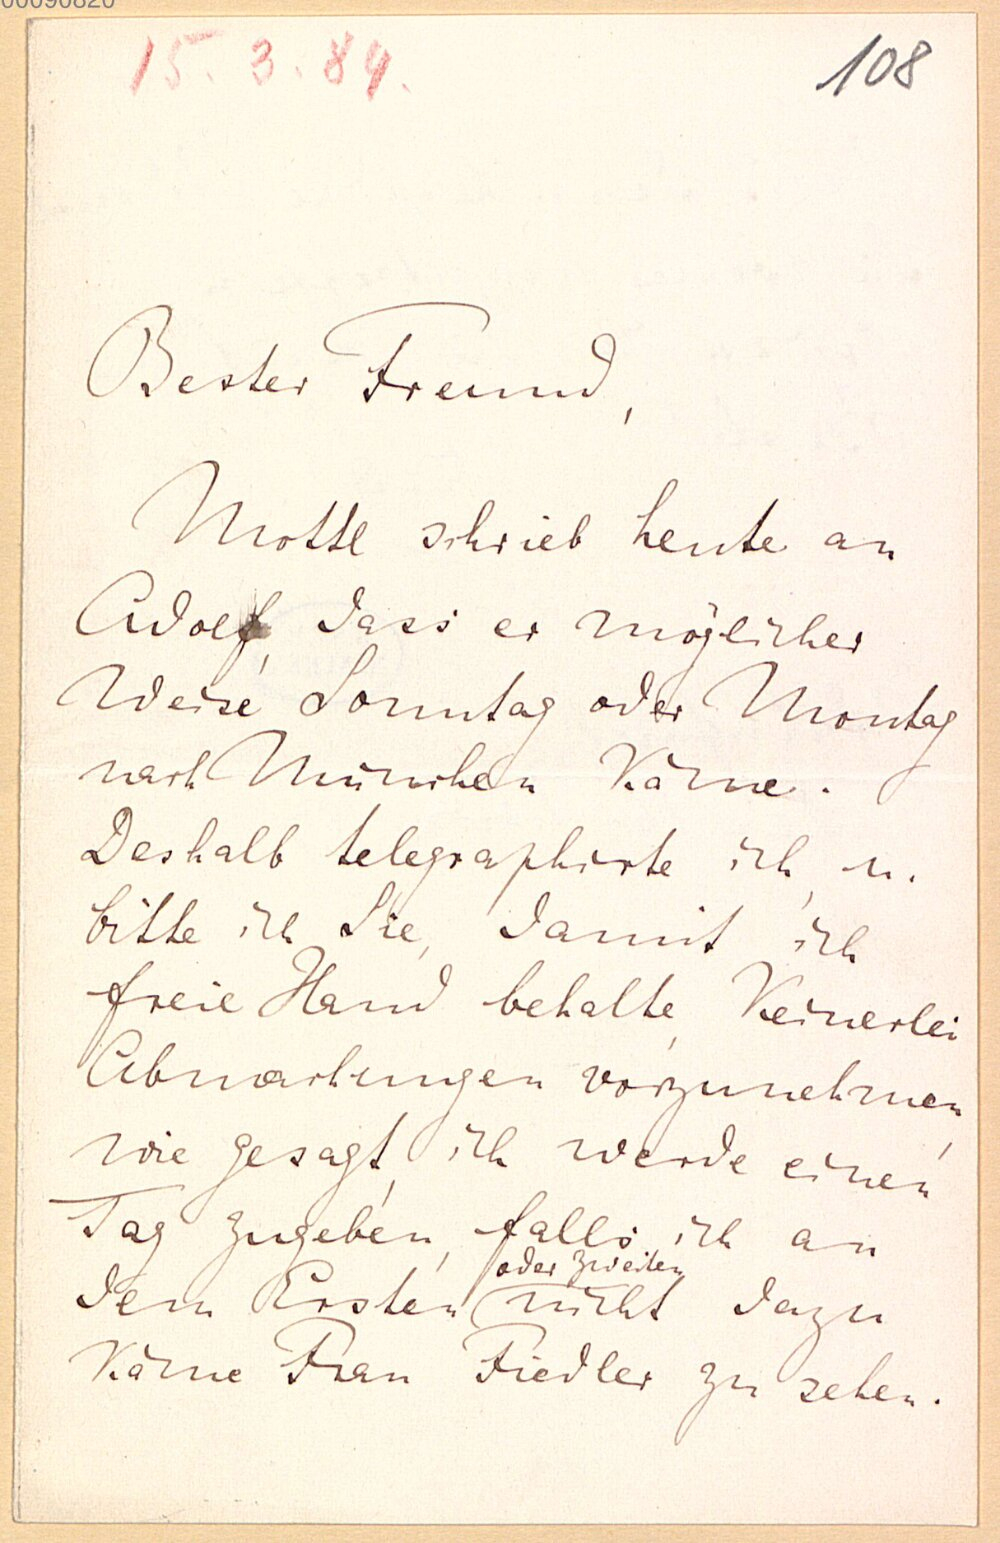 00090820
15. 3. 84.
108
Bester Freund,
Mottl schrieb heute an
Adolf, dass er möglicher
Weise Sonntag oder Montag
nach München käme.
Deshalb telegraphirte ich, u.
bitte ich Sie, damit ich
freie Hand behalte, keinerlei
Abmachungen vorzunehmen,
wie gesagt, ich werde einen
Tag zugeben, falls ich an
dem Ersten oder zweiten nicht dazu
käme Frau Fiedler zu sehen.